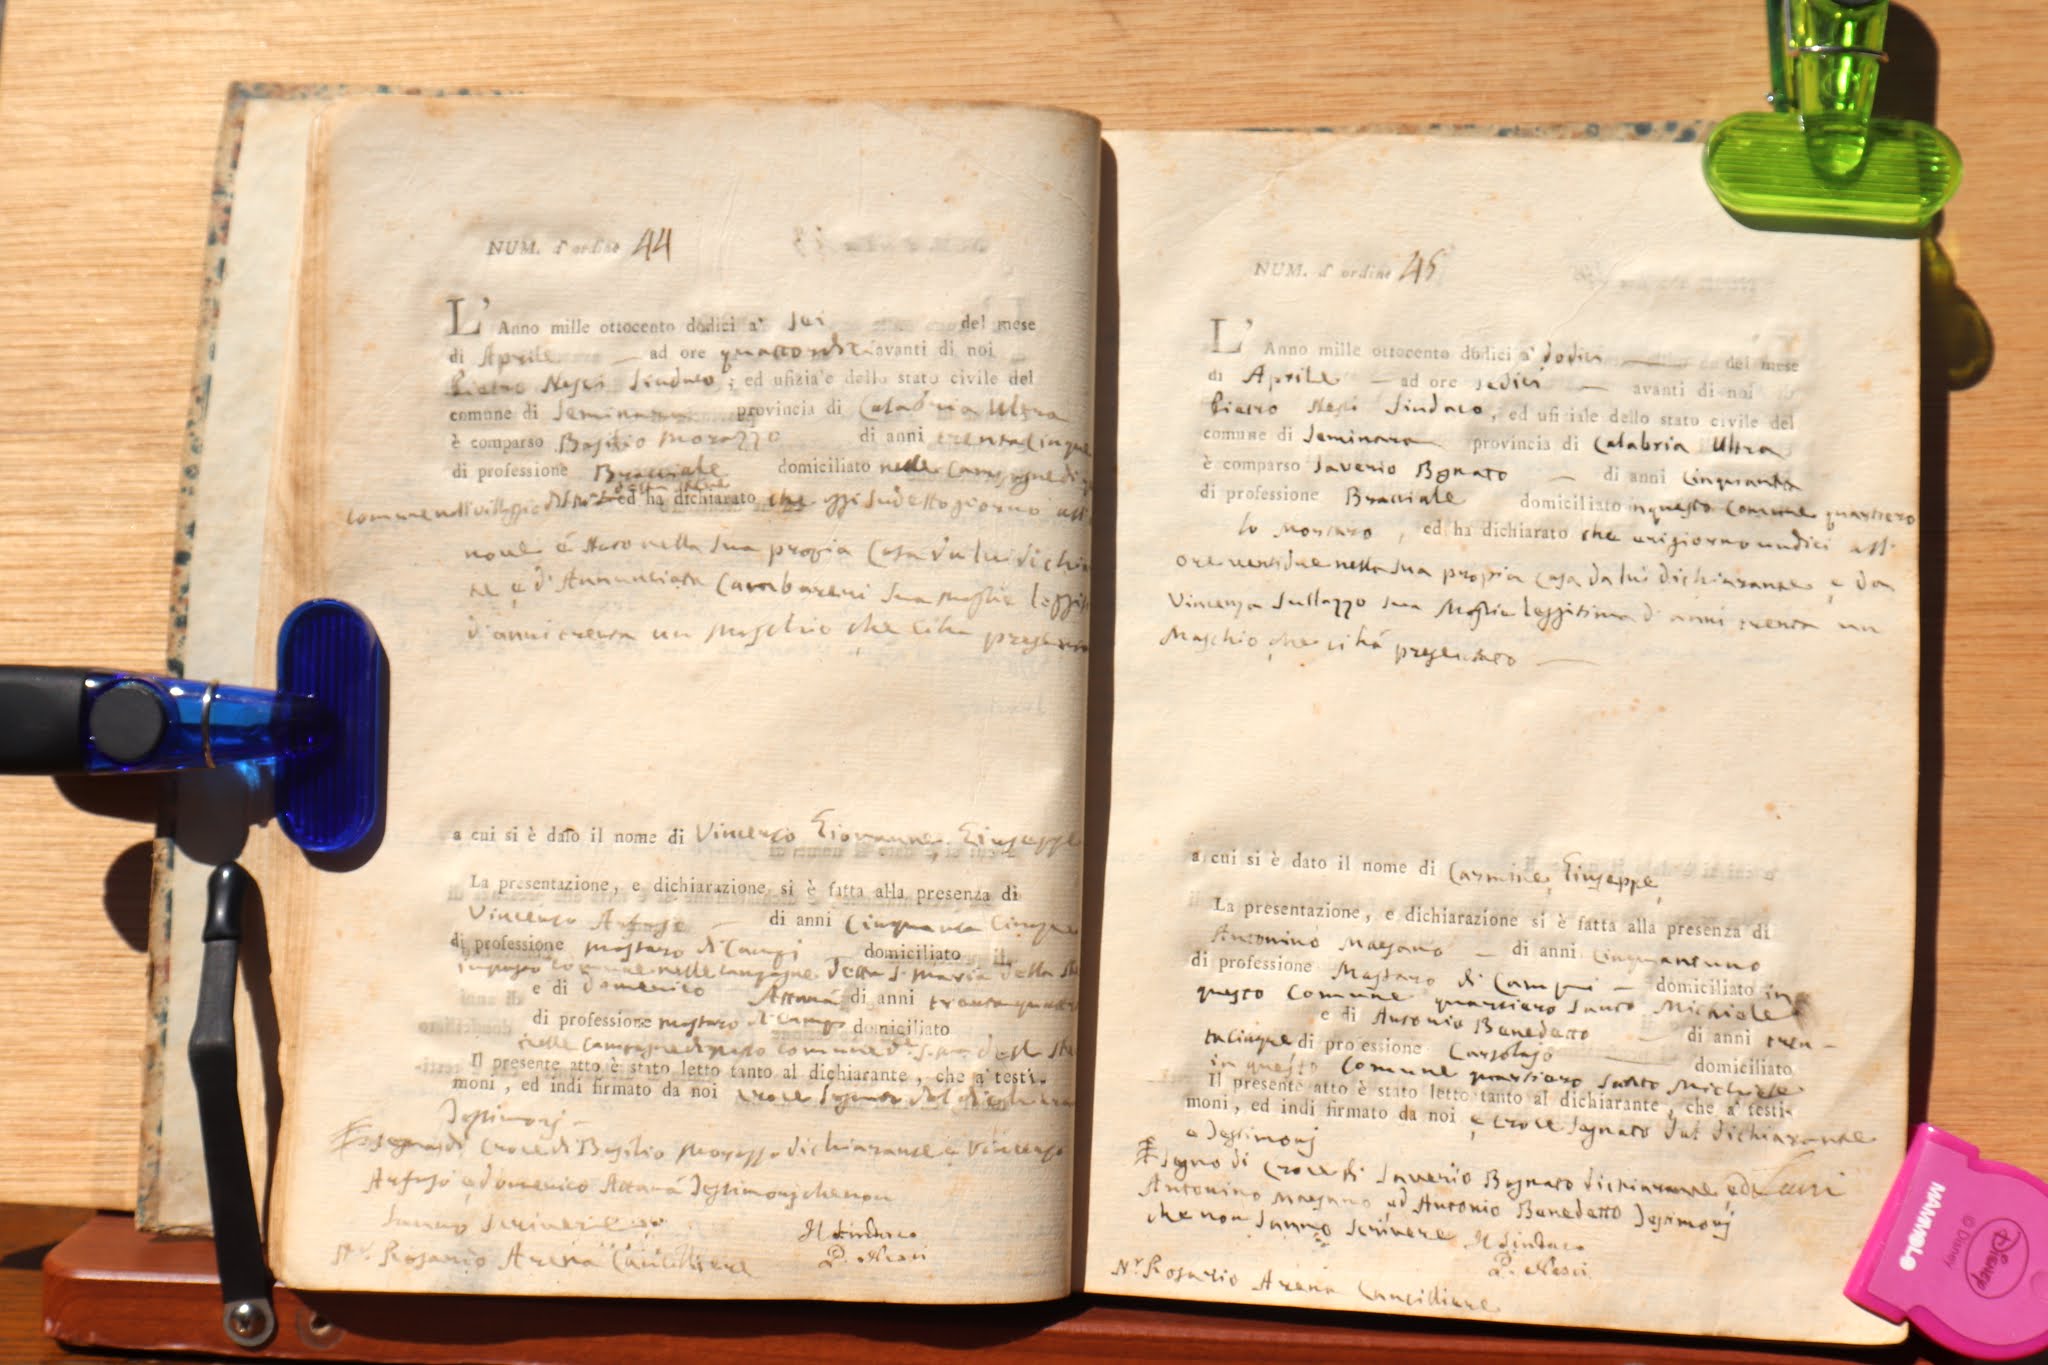 NUM. d'ordine 44
L'Anno mille ottocento dodici a' sei del mese
di Aprile ad ore quattordici avanti di noi
Pietro Nesci Sindaco, ed ufiziale dello stato civile del
comune di Seminara provincia di Calabria Ultra
è comparso Basilio Morazzo di anni trentacinque
di professione Bracciale domiciliato nelle Campagne di
ed ha dichiarato che oggi sudetto giorno all'
nove è nato nella sua propia Casa da lui dichia
te e d'Annunciata sua moglie
d'anni trenta un Maschio che ci ha presentato
a cui si è dato il nome di Vincenzo Giovanne Giuseppe
La presentazione, e dichiarazione si è fatta alla presenza di
Vincenzo Arfuso di anni Cinquanta Cinque
di professione Mastaro di Campi domiciliato
comune nelle campagne della S. Maria della
e di Domenico Attanà di anni
di professione mastaro di Campo domiciliato
nelle Campagne di questo comune
Il presente atto è stato letto tanto al dichiarante, che a' testi-
moni, ed indi firmato da noi croce segnato dal dichiara
Testimonj
Segno di Croce di Basilio Morazzo dichiarante e Vincenzo
Arfuso e Domenico Attanà Testimonj che non
sanno scrivere
Il Sindaco
Rosario Arena Cancelliere
P. Nesci
NUM. d'ordine 45
L'Anno mille ottocento dodici a' dodici del mese
di Aprile ad ore sedici avanti di noi
Pietro Nesci Sindaco, ed ufiziale dello stato civile del
comune di Seminara provincia di Calabria Ultra
è comparso Saverio Bgnato di anni Cinquanta
di professione Bracciale domiciliato in questo Comune quartiero
lo Mortaro, ed ha dichiarato che eri giorno undici all'
ore ventidue nella sua propria casa da lui dichiarante, e da
Vincenza Sullazzo sua Moglie leggitima d'anni trenta un
Maschio che ci ha presentato
a cui si è dato il nome di Carmine, Giuseppe,
La presentazione, e dichiarazione si è fatta alla presenza di
Antonino Maesano di anni Cinquantuno
di professione Mastaro di Campi domiciliato in
questo Comune quartiero Santo Michiele
e di Antonio Benedetto di anni tren-
tacinque di professione Carsolajo domiciliato
in questo Comune quartiero Santo Michiele
Il presente atto è stato letto tanto al dichiarante, che a' testi-
moni, ed indi firmato da noi e croce segnato dal dichiarante
e Testimonj
Segno di Croce di Saverio Bognato dichiarante, ed
Antonino Maesano ed Antonio Benedetto Testimonj
che non sanno scrivere
Il Sindaco
P. Nesci
Rosario Arena Cancelliere
MANNOLO
© Disney
Disney